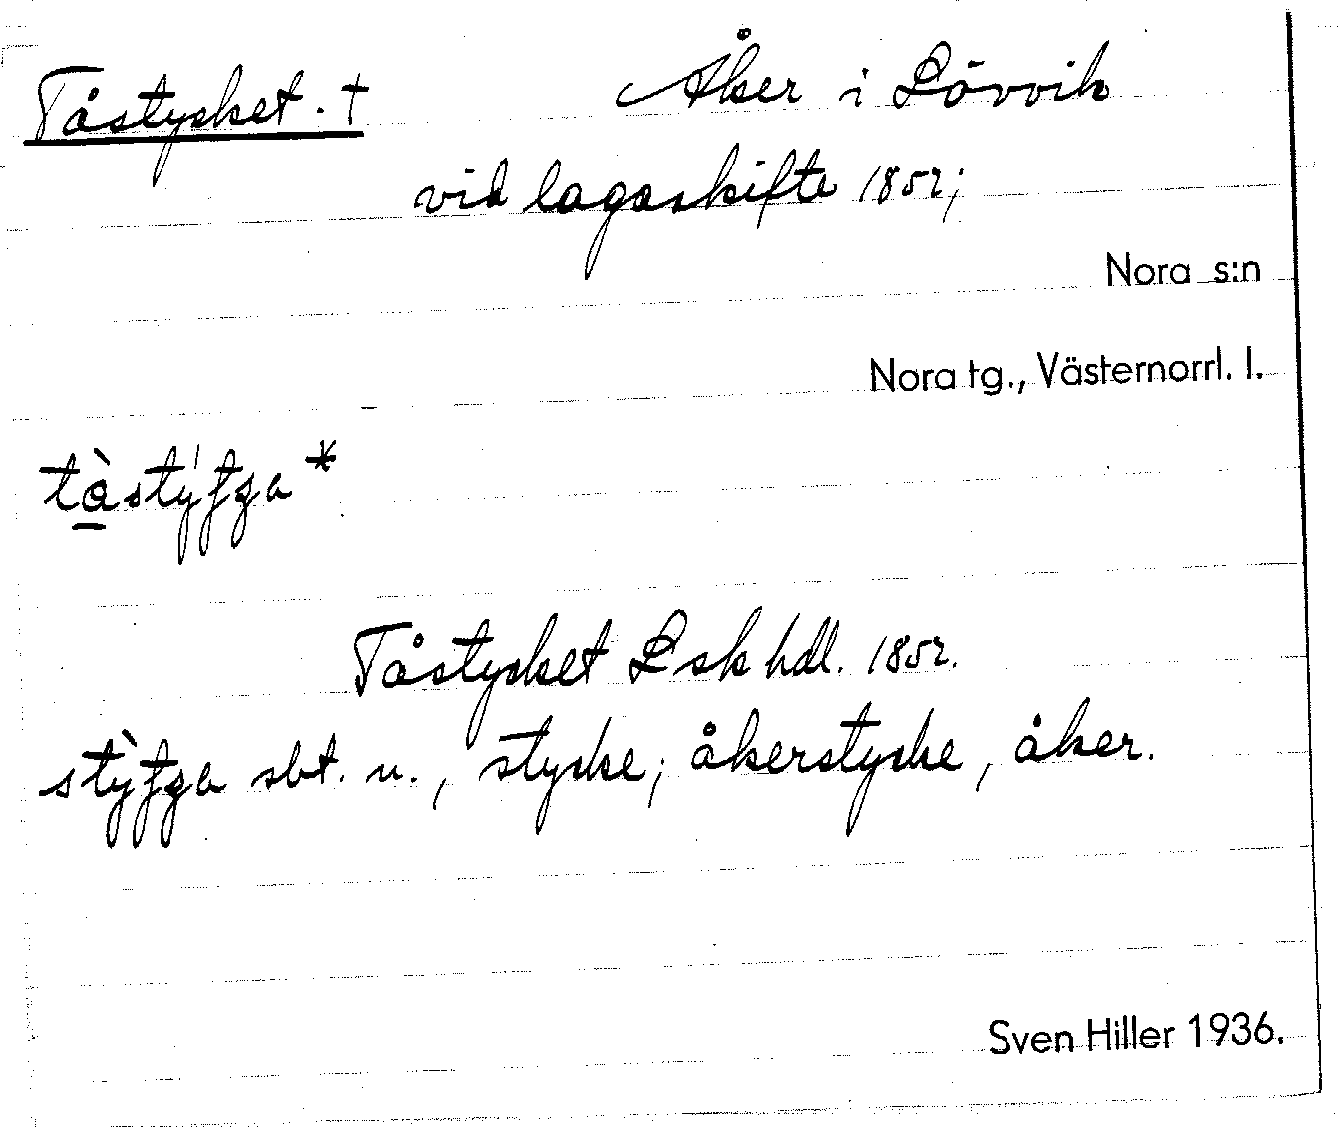 Tåstycket. † Åker i Lövvik
vid lagaskifte 1852;
Nora s:n
Nora tg., Västernorrl. l.
tàstýfga *
Tåstycket Lsk hdl. 1852.
stỳfga sbt. n., stycke; åkerstycke, åker.
Sven Hiller 1936.